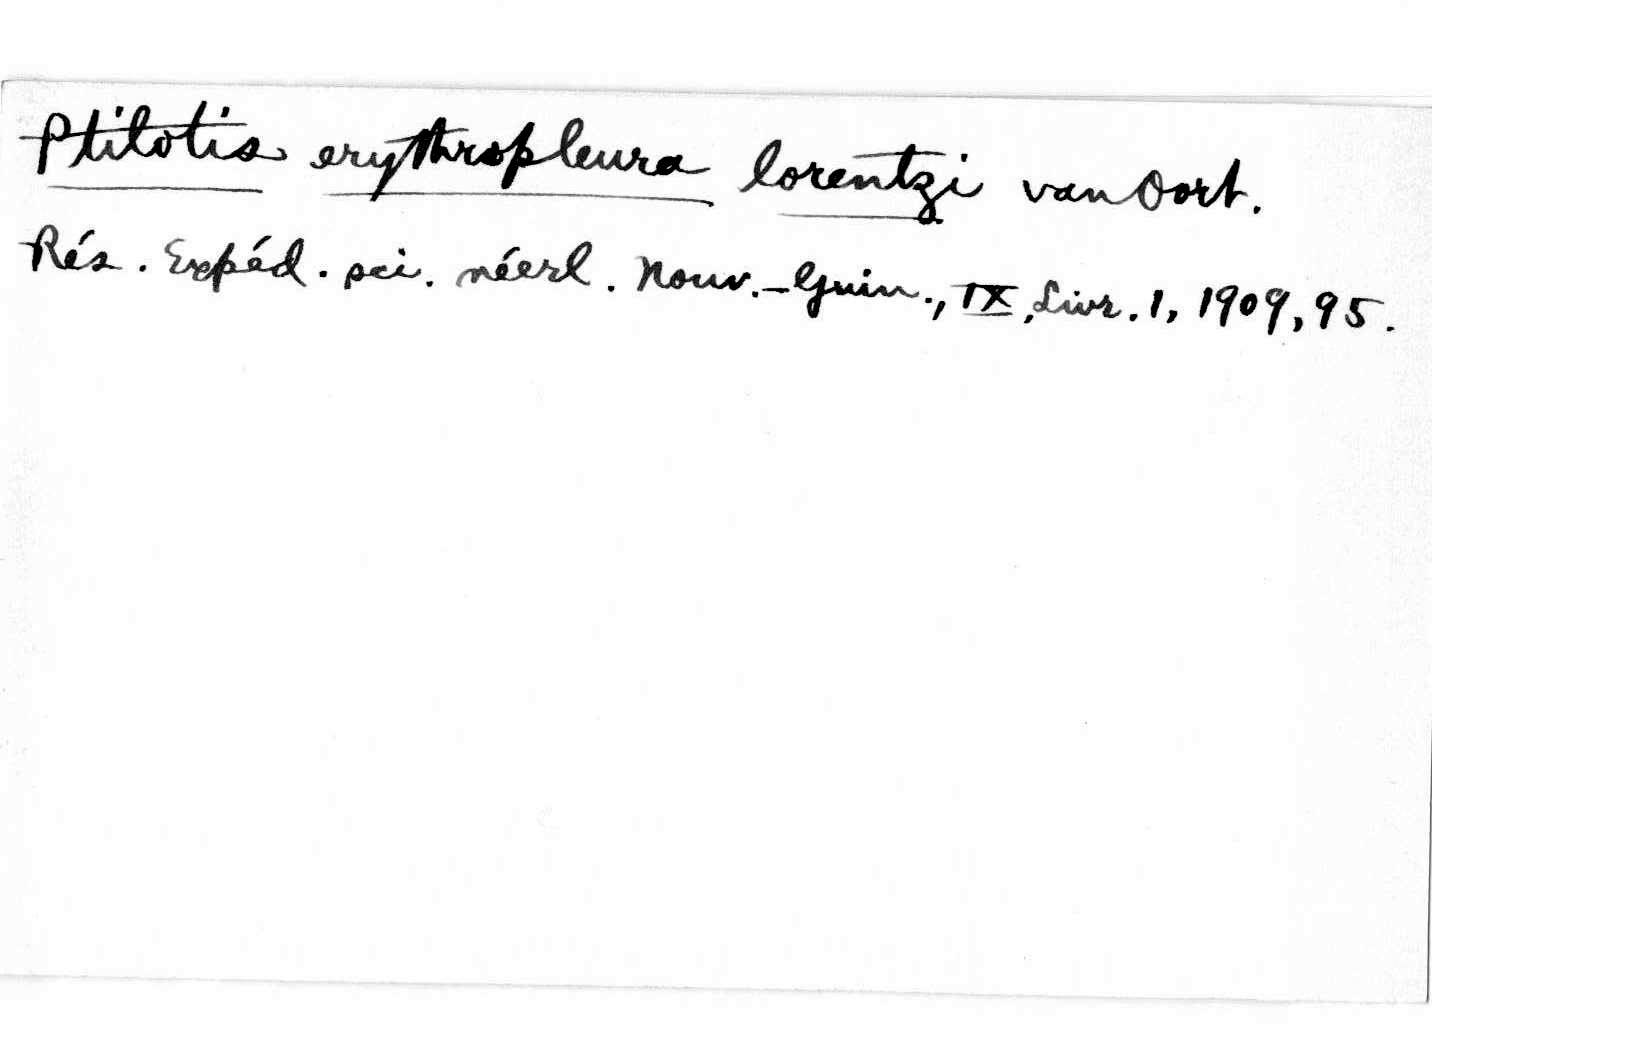 Ptilotis erythropleura lorentzi van Oort.
Rés. Expéd. sci. néerl. Nouv.-Guin., IX, Livr. 1, 1909, 95.